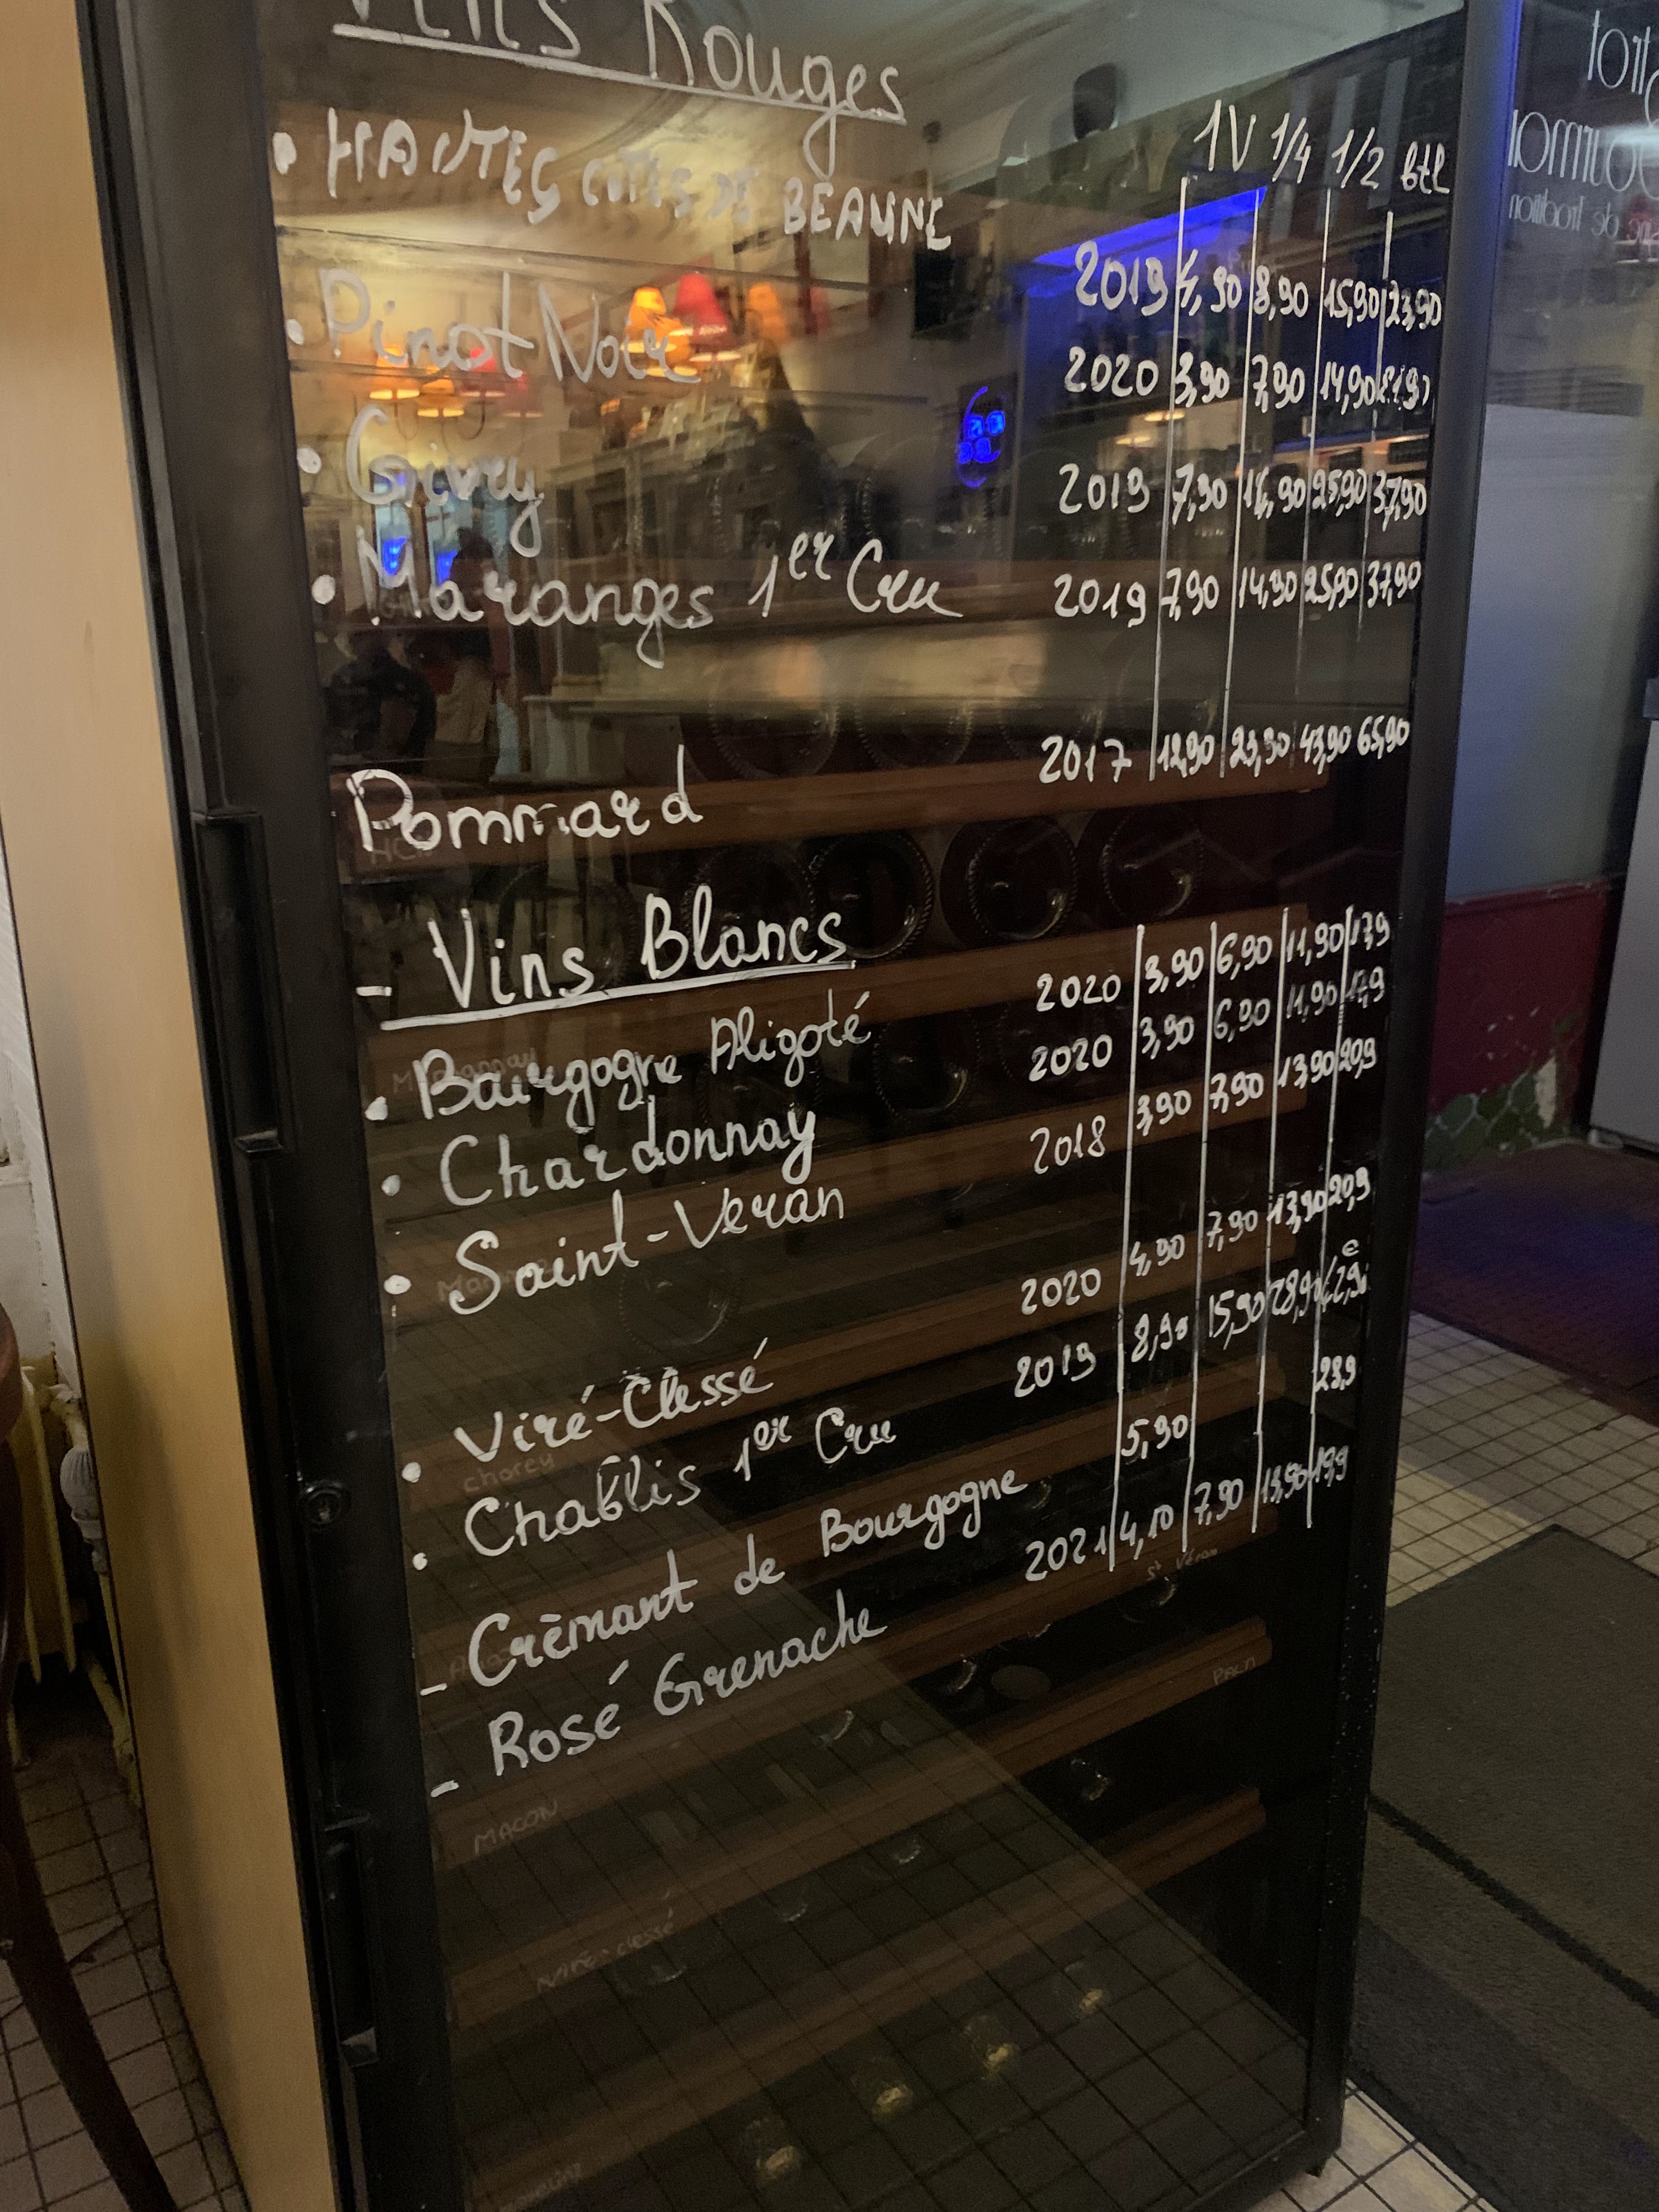 Vins Rouges
1V 1/4 1/2 btl
• HAUTES COTES DE BEAUNE 2019 4,90 8,90 15,90 23,90
• Pinot Noir 2020 3,90 7,90 14,90 21,90
• Givry 2019 7,90 14,90 25,90 37,90
• Maranges 1er Cru 2019 7,90 14,90 25,90 37,90
Pommard 2017 12,90 23,90 43,90 65,90
- Vins Blancs
• Bourgogne Aligoté 2020 3,90 6,90 11,90 17,9
• Chardonnay 2020 3,90 6,90 11,90 17,9
• Saint-Veran 2018 3,90 7,90 13,90 20,9
• Viré-Clessé 2020 4,90 7,90 13,90 20,9
• Chablis 1er Cru 2019 8,90 15,90 28,90 42,9
- Crèmant de Bourgogne 5,90 28,9
- Rosé Grenache 2021 4,10 7,90 13,90 19,9
chorey
St Véran
MACON
de Tradition